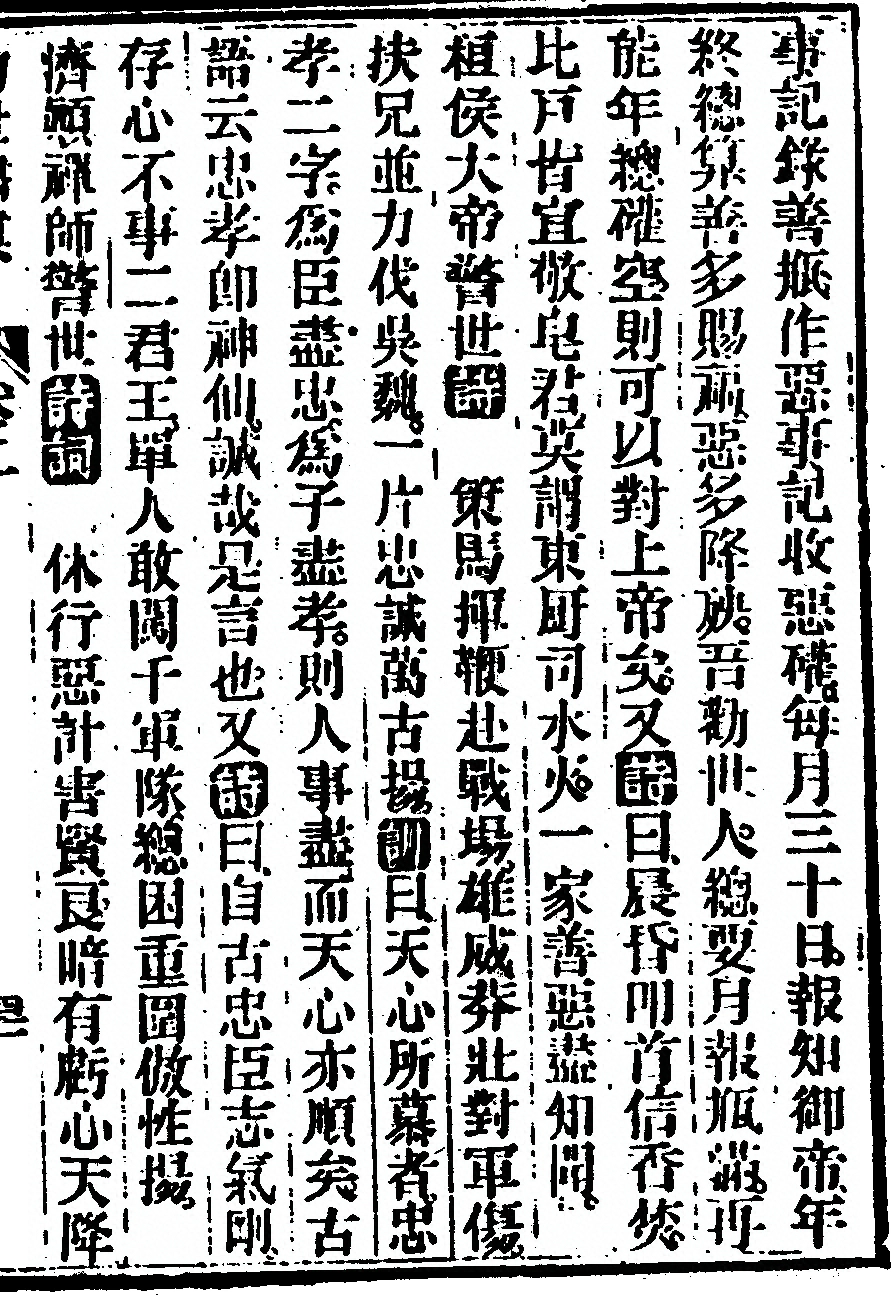 事記錄善瓶作惡事記收惡礶每月三十日報知御帝年
終總算善多賜福惡多降殃吾勸世人總要月報瓶滿再
能年總礶空則可以對上帝矣又詩曰晨昏叩首信香焚
比戶皆宜敬皂君莫謂東厨司水火一家善惡盡知聞
桓侯大帝警世詩　策馬揮鞭赴戰塲雄威莽壯對軍傷
扶兄並力伐吳魏一片忠誠萬古揚訓曰天心所慕者忠
孝二字爲臣盡忠爲子盡孝則人事盡而天心亦順矣古
語云忠孝卽神仙誠哉是言也又詩曰自古忠臣志氣剛
存心不事二君王單人敢闖千軍隊總困重圍傲性揚
濟顛禪師警世詩詞　休行惡計害賢良暗有虧心天降